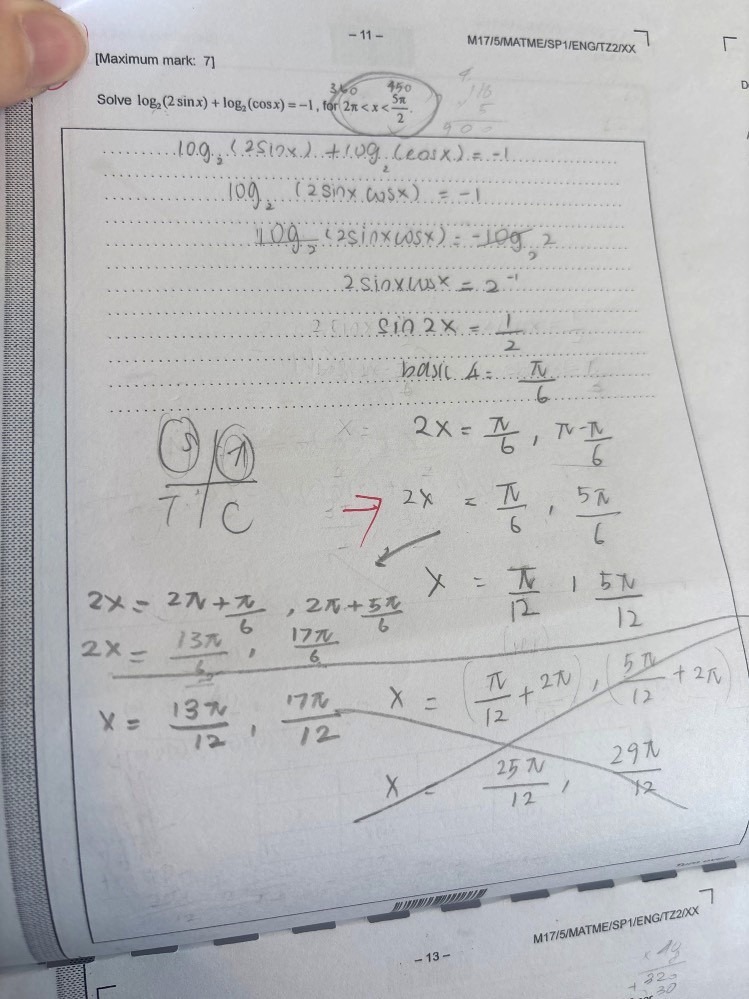 – 11 –
M17/5/MATME/SP1/ENG/TZ2/XX
[Maximum mark: 7]
360 450
Solve log₂(2 sin x) + log₂(cos x) = −1, for 2π < x < 5π/2.
log₂ (2sinx) + log₂ (cosx) = -1
log₂ (2sinx cosx) = -1
log₂ (2sinxcosx) = -log₂ 2
2sinxcosx = 2⁻¹
sin 2x = 1/2
basic ∠ = π/6
2x = π/6, π-π/6
S A
T C
2x = π/6, 5π/6
x = π/12, 5π/12
2x = 2π+π/6, 2π+5π/6
2x = 13π/6, 17π/6
x = 13π/12, 17π/12
x = (π/12 + 2π), (5π/12 + 2π)
x = 25π/12, 29π/12
M17/5/MATME/SP1/ENG/TZ2/XX
– 13 –